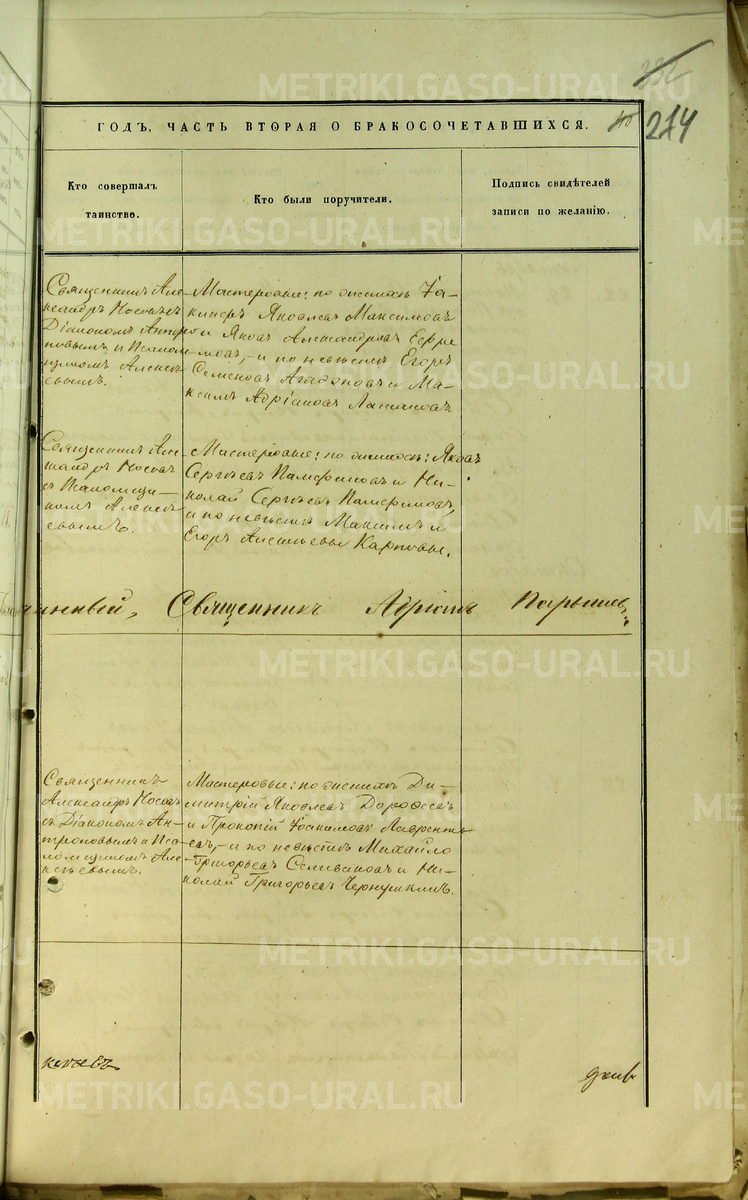 274
ГОДЪ, ЧАСТЬ ВТОРАЯ О БРАКОСОЧЕТАВШИХСЯ.
Кто совершалъ
таинство.
Кто были поручители.
Подпись свидѣтелей
записи по желанію.
Священникъ Але-
ксандръ Носовъ съ
Діакономъ Антро-
повымъ и Псалом-
щикомъ Алексѣ-
евымъ.
Мастеровые: по женихѣ Іа-
Яковлевъ Максимовъ
и Яковъ Александровъ Ефре-
мовъ, и по невѣстѣ Егоръ
Семеновъ Агафоновъ и Ма-
ксимъ Адріановъ
Священникъ Алек-
сандръ Носовъ
съ Псаломщи-
комъ Алексѣ-
евымъ.
Мастеровые: по женихѣ: Яковъ
Сергѣевъ Памфиловъ и Ни-
колай Сергѣевъ Памфиловъ,
и по невѣстѣ Максимъ и
Егоръ Карповы.
Священникъ Адріанъ
Священникъ
Александръ Носовъ
съ Діакономъ Ан-
троповымъ и Пса-
ломщикомъ Але-
ксѣевымъ.
Мастеровые: по женихѣ Ди-
митрій Яковлевъ Дорофеевъ
и Прокопій Іоакимовъ Лаврентьевъ
и по невѣстѣ Михайло
Григорьевъ Селивановъ и Ни-
колай Григорьевъ Чернушкинъ.
METRIKI.GASO-URAL.RU